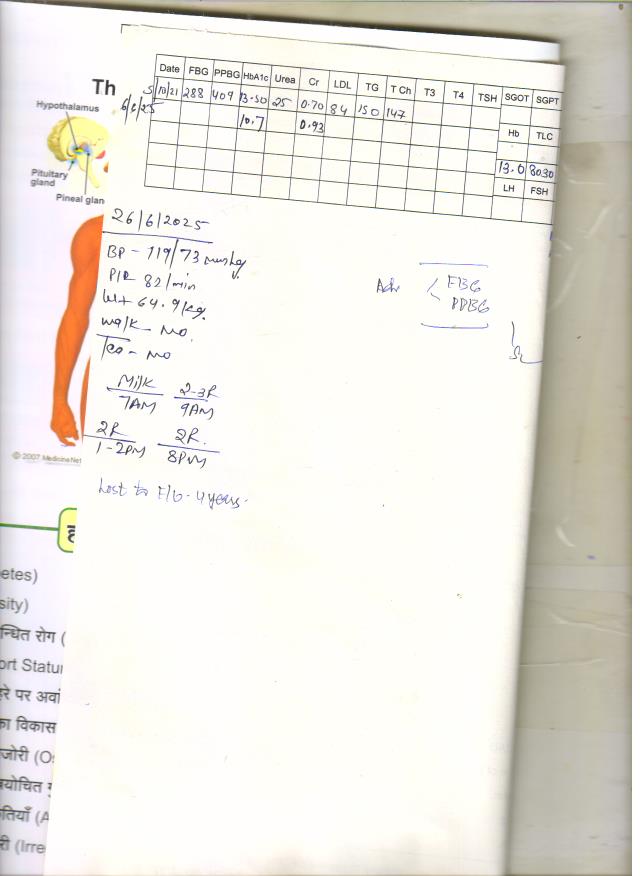 Th
Hypothalamus
Pituitary
gland
Pineal glan
© 2007 MedicineNet
etes)
sity)
न्धित रोग (
ort Statur
हरे पर अवां
का विकास
जोरी (O
तियाँ (A
री (Irre
Date FBG PPBG HbA1c Urea Cr LDL TG T Ch T3 T4 TSH SGOT SGPT
5/10/21 288 409 13.50 25 0.70 84 150 147
10.7 0.93
Hb TLC
13.0 8030
LH FSH
26/6/2025
BP - 119/73 mmHg
P/R 82/min
Wt 64.9/kg.
walk - No.
Tea - No
Milk 2-3R
7AM 9AM
2R 2R.
1-2PM 8PM
Lost to F/U - 4 years.
Adv FBG
PPBG